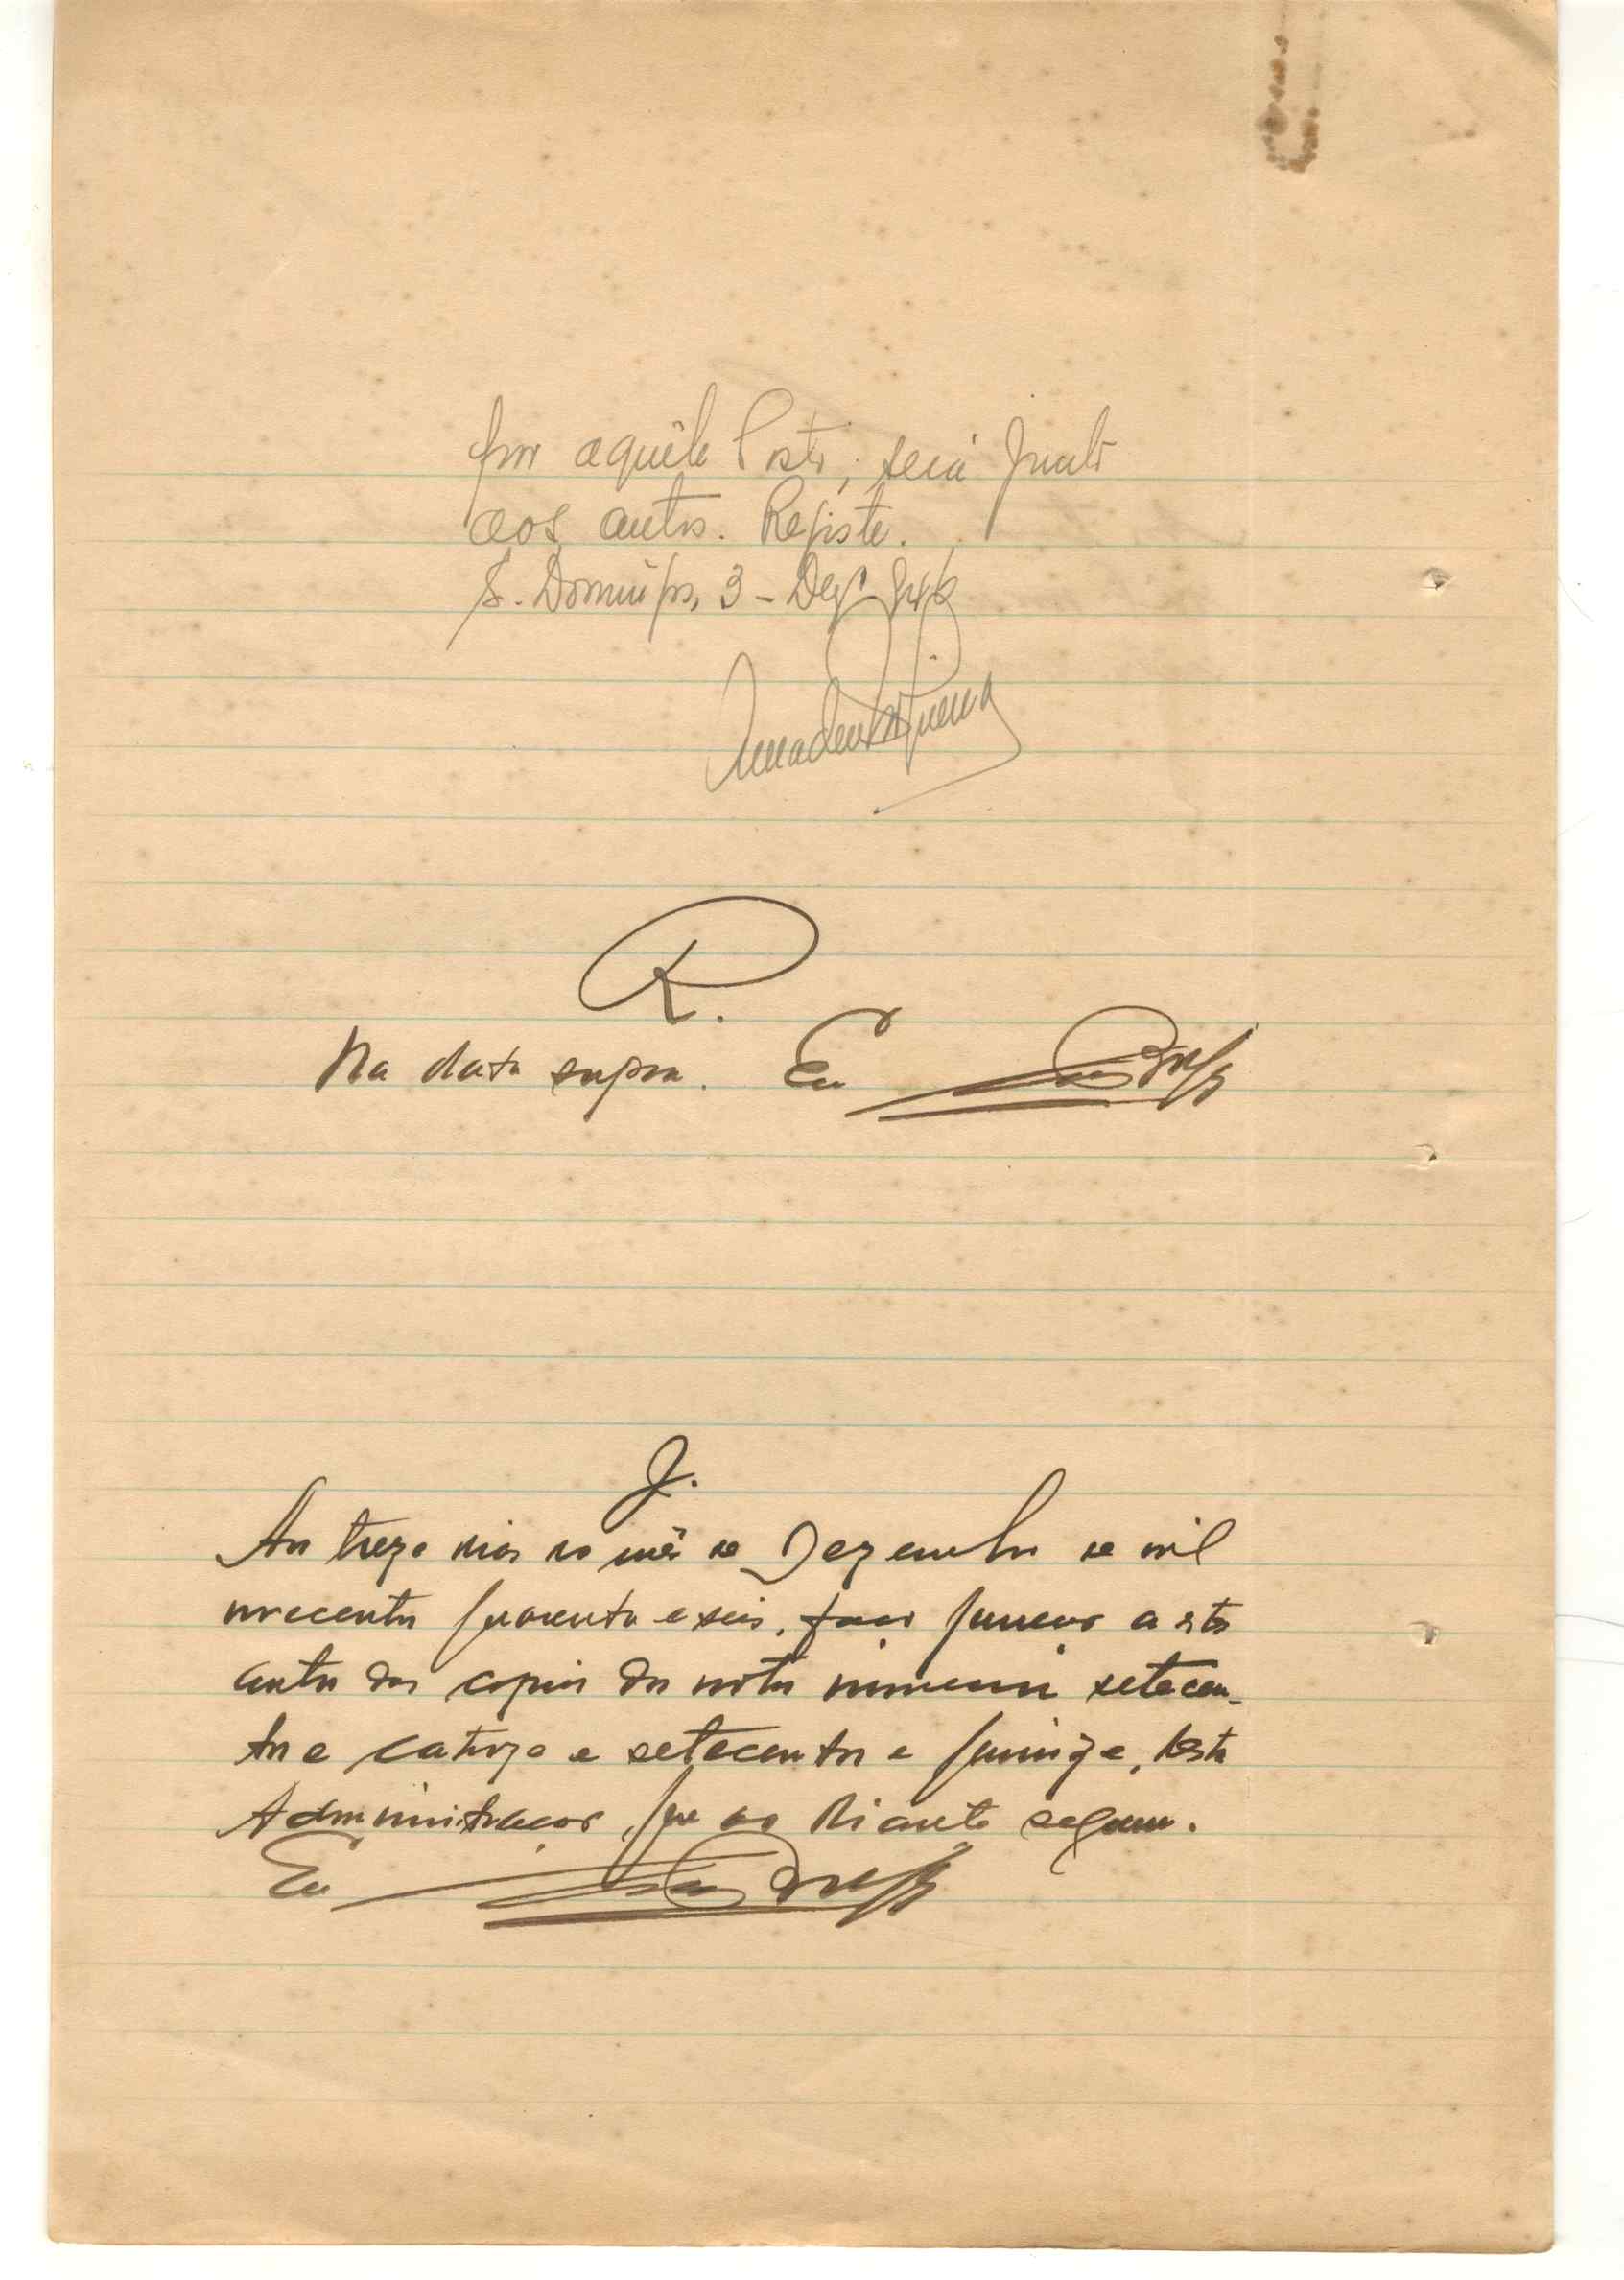 por aquêle Posto, será junto
aos autos. Registe.
S. Domingos, 3-Dezº 946
Amadeu Nogueira
R.
Na data supra. Eu
J.
Aos treze dias do mês de Dezembro de mil
novecentos quarenta e seis, faço juncao a estes
autos das copias das notas numeros setecen-
tos e catorze e setecentos e quinze, desta
Administracao, que ao diante seguem.
Eu